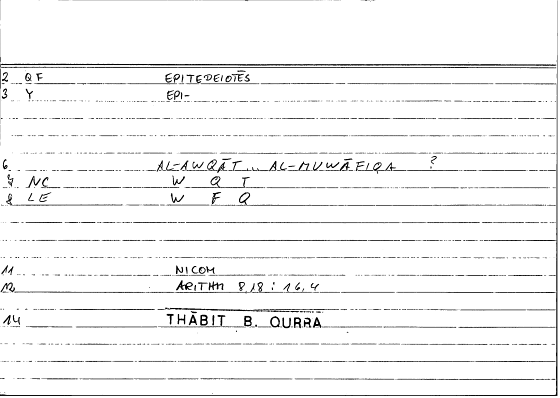 2 QF EPITEDEIOTĒS
3 Y EPI-
6 AL-AWQĀT... AL-MUWĀFIQA ?
7 NC W Q T
8 LE W F Q
11 NICOM
12 ARITHM 8,18 : 16,4
14 THĀBIT B. QURRA